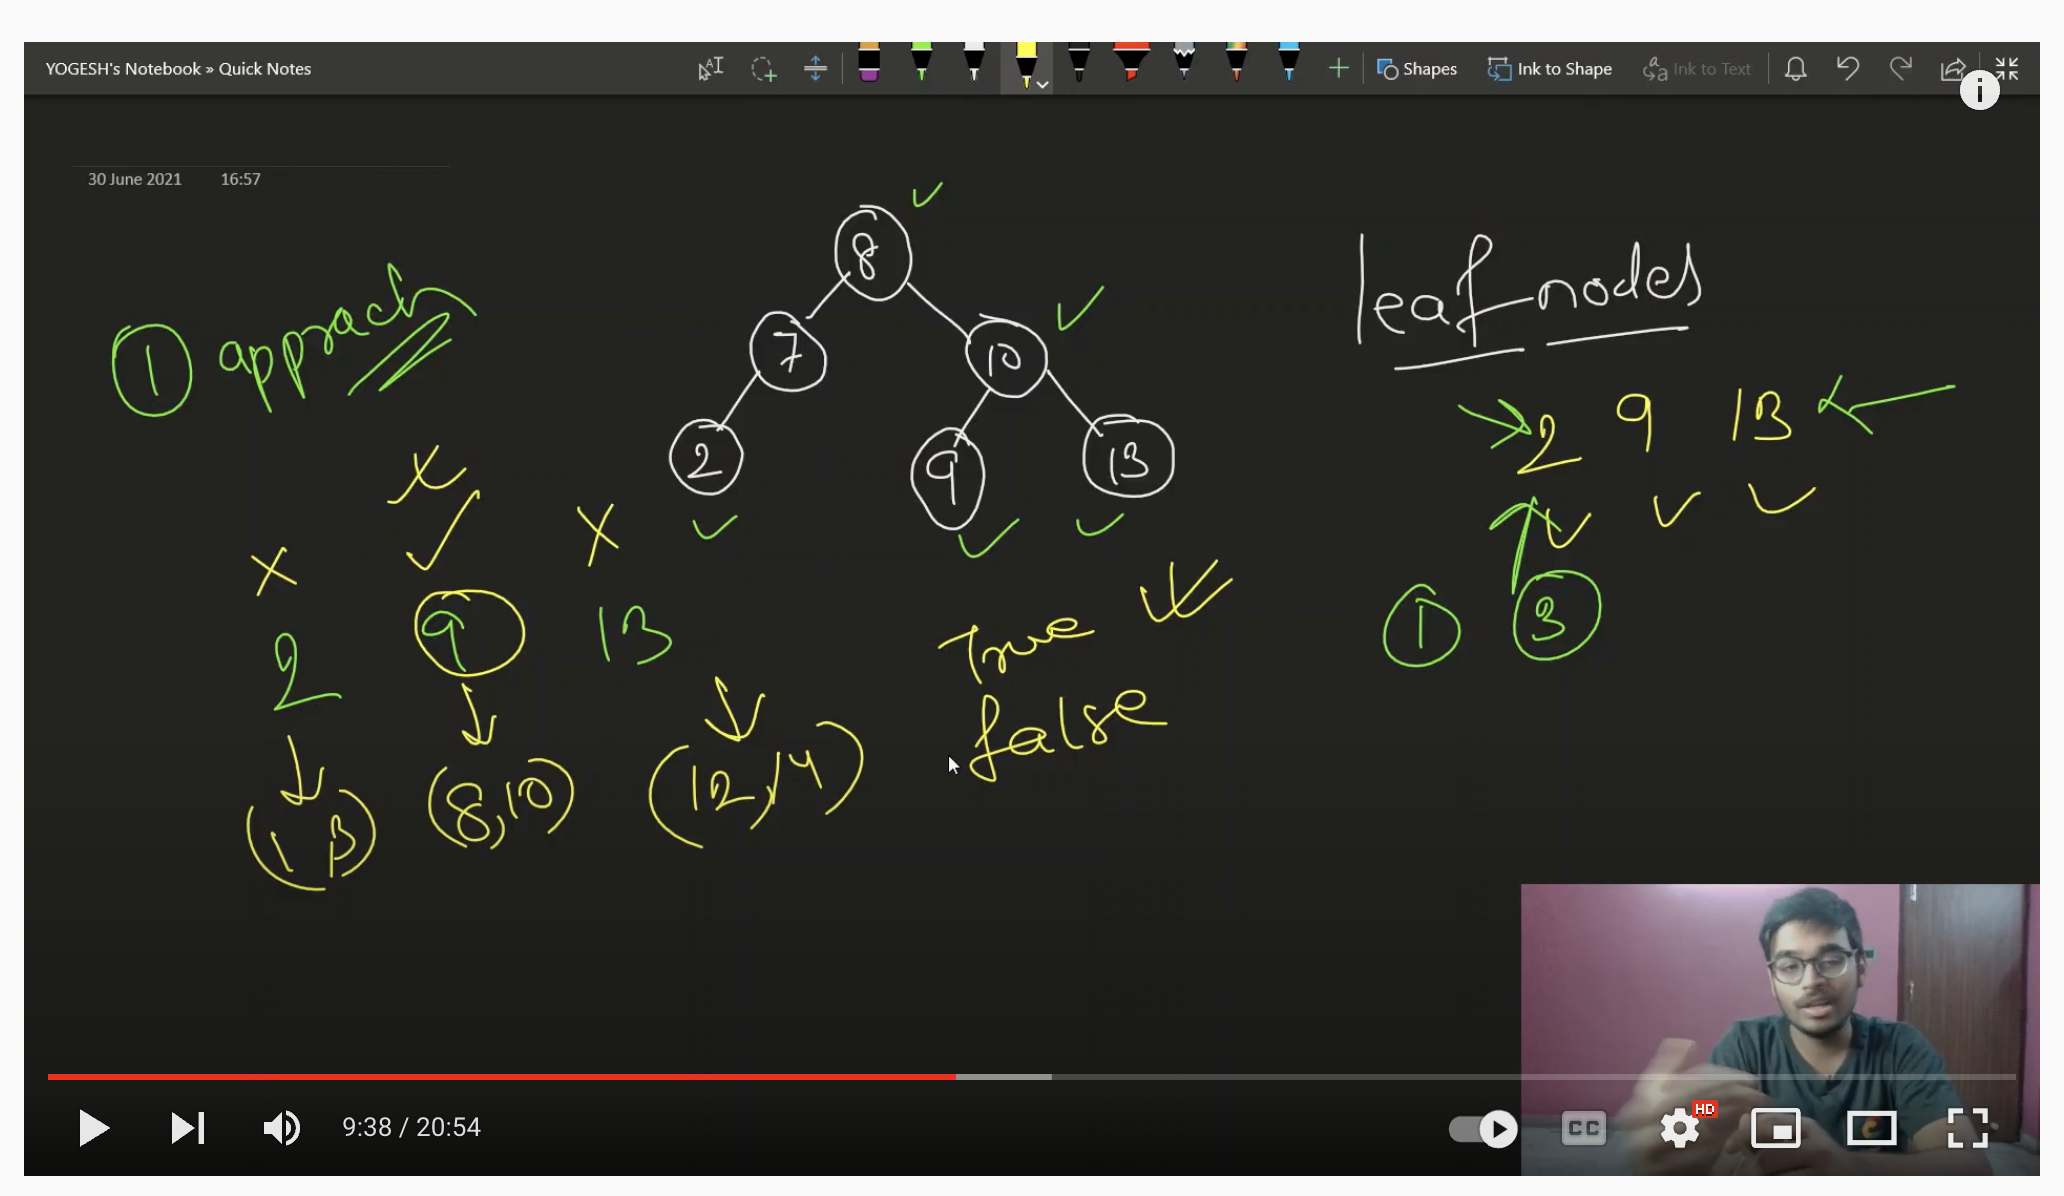 YOGESH's Notebook » Quick Notes
Shapes
Ink to Shape
Ink to Text
30 June 2021 16:57
8
7 10
2 9 13
leaf nodes
2 9 13
1 3
1 apprach
2 9 13
(1 3) (8,10) (12,14)
True
false
9:38 / 20:54
CC
HD